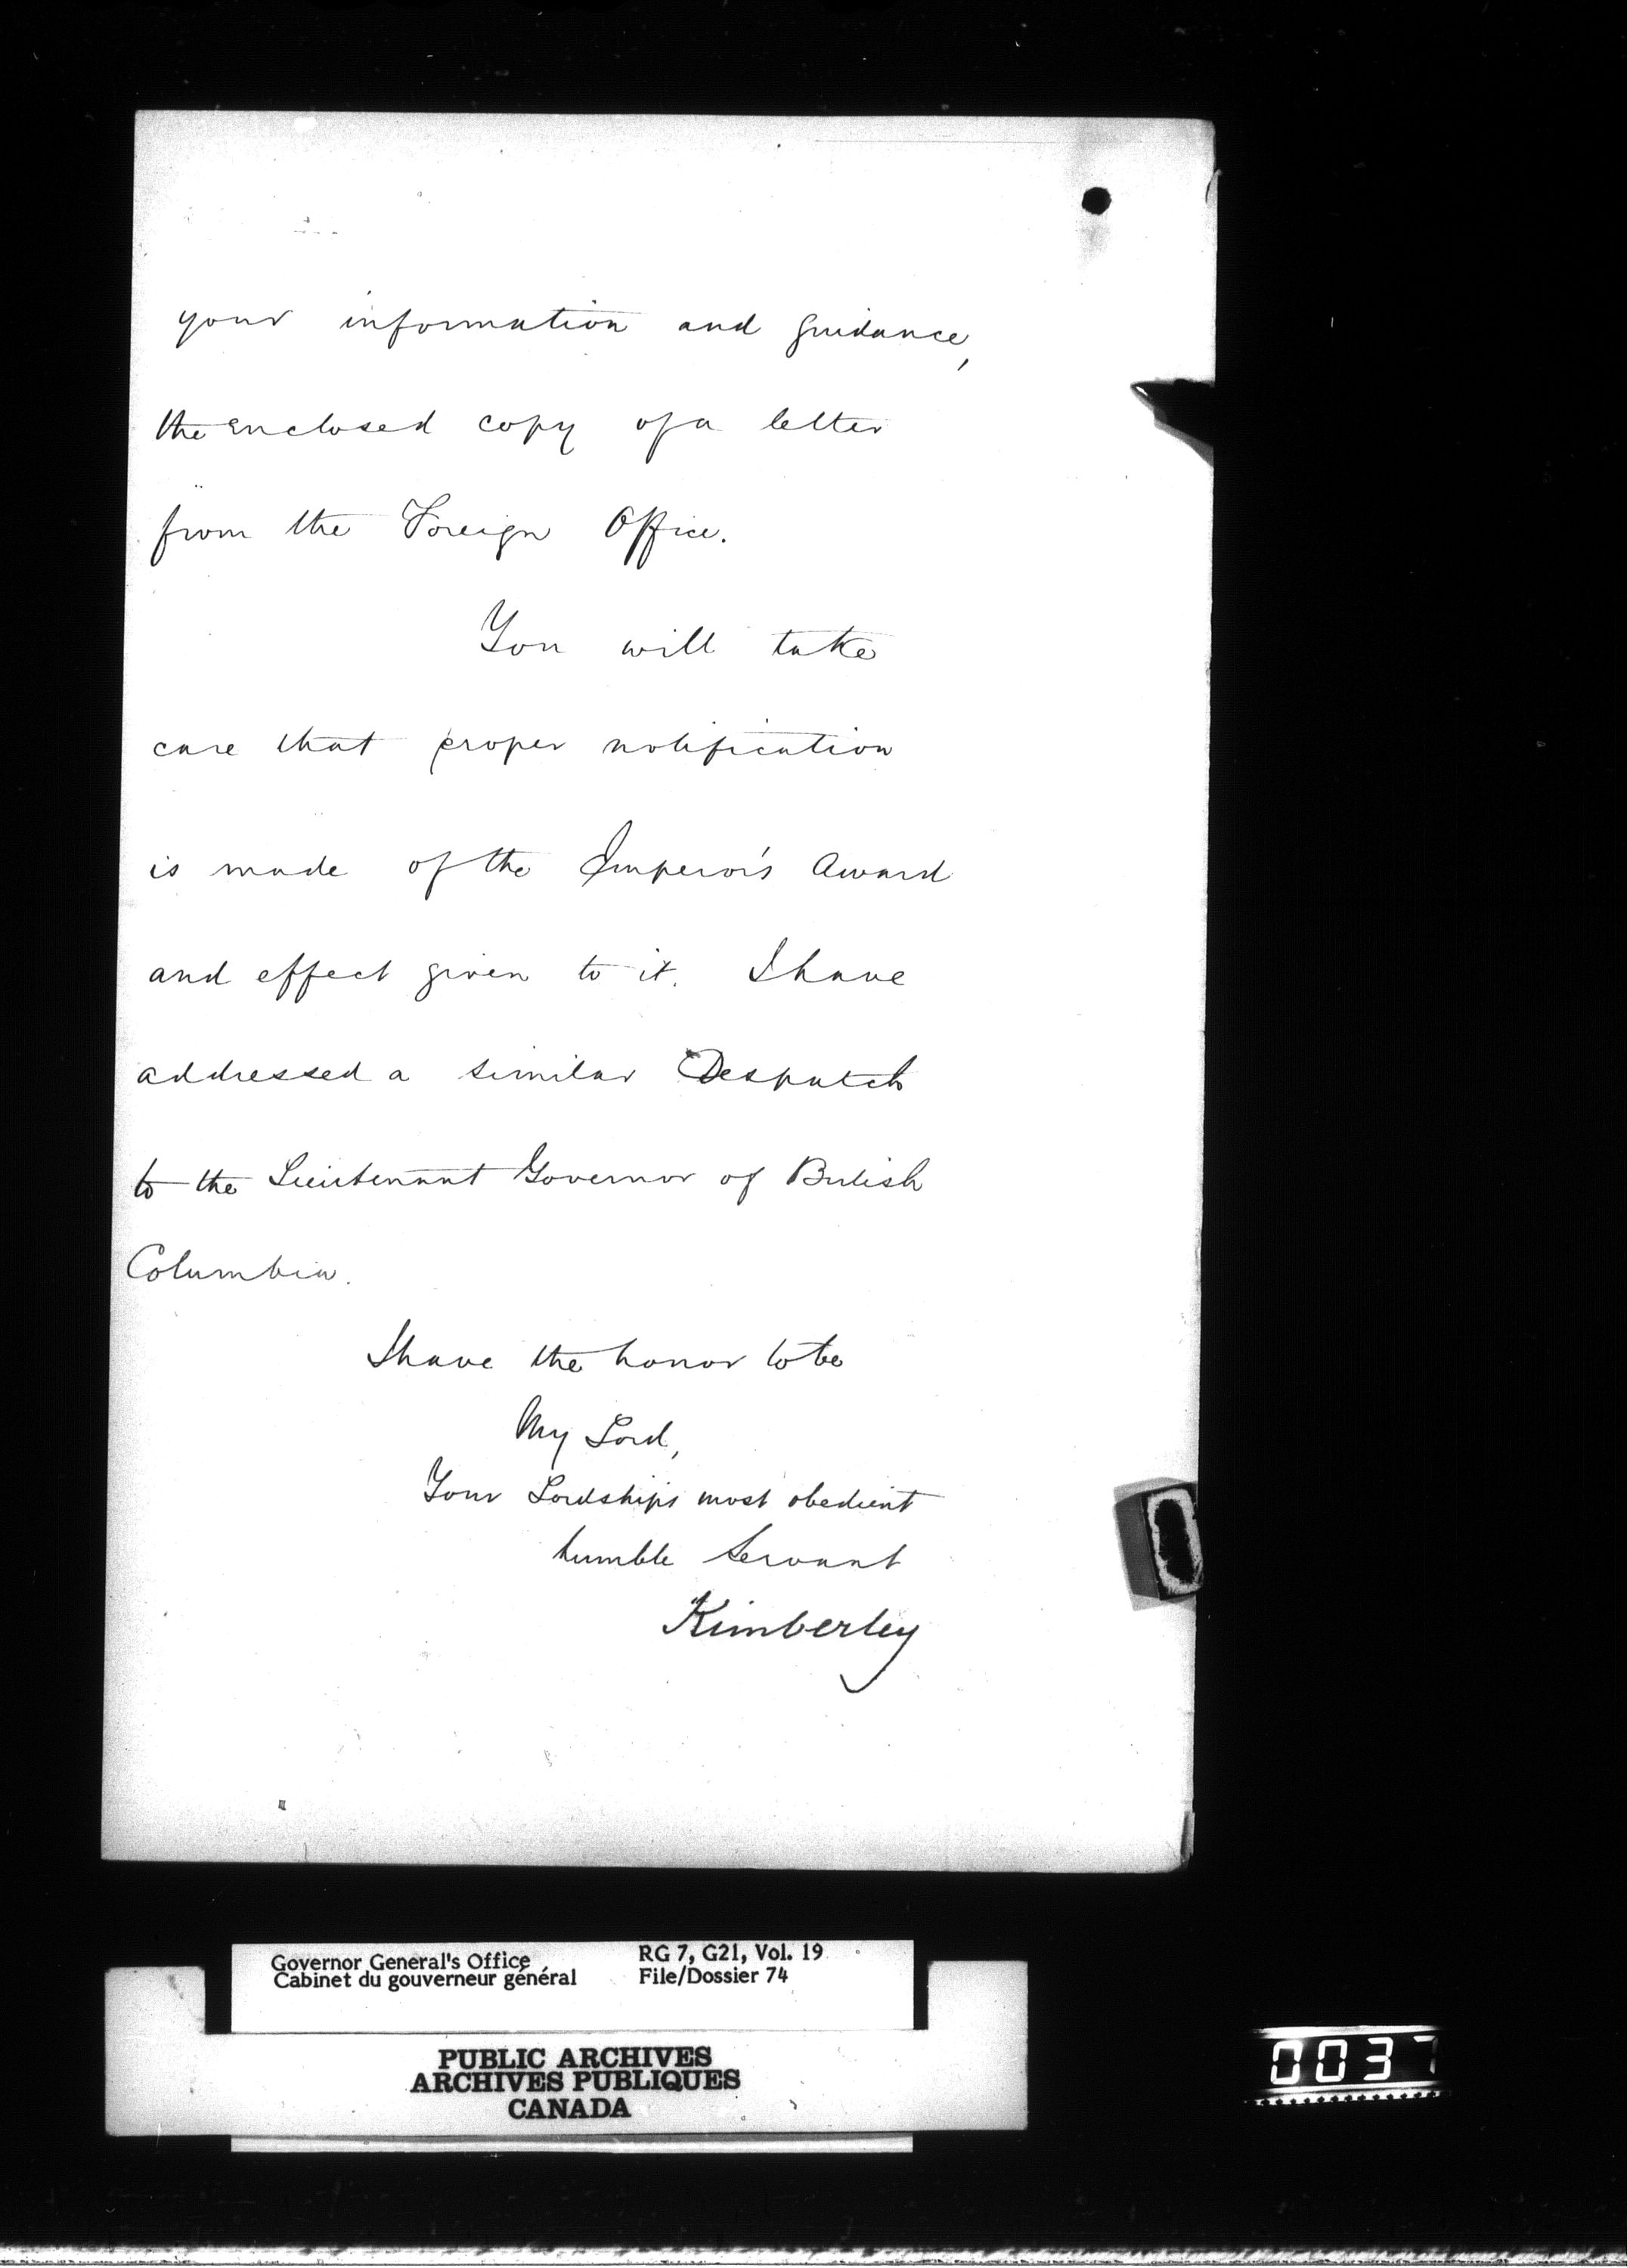 your information and guidance,
the enclosed copy of a letter
from the Foreign Office.
You will take
care that proper notification
is made of the Emperor's Award
and effect given to it. I have
addressed a similar Despatch
to the Lieutenant Governor of British
Columbia.
I have the honor to be
My Lord,
Your Lordship's most obedient
humble Servant
Kimberley
Governor General's Office RG 7, G21, Vol. 19
Cabinet du gouverneur général File/Dossier 74
PUBLIC ARCHIVES
ARCHIVES PUBLIQUES
CANADA
0037